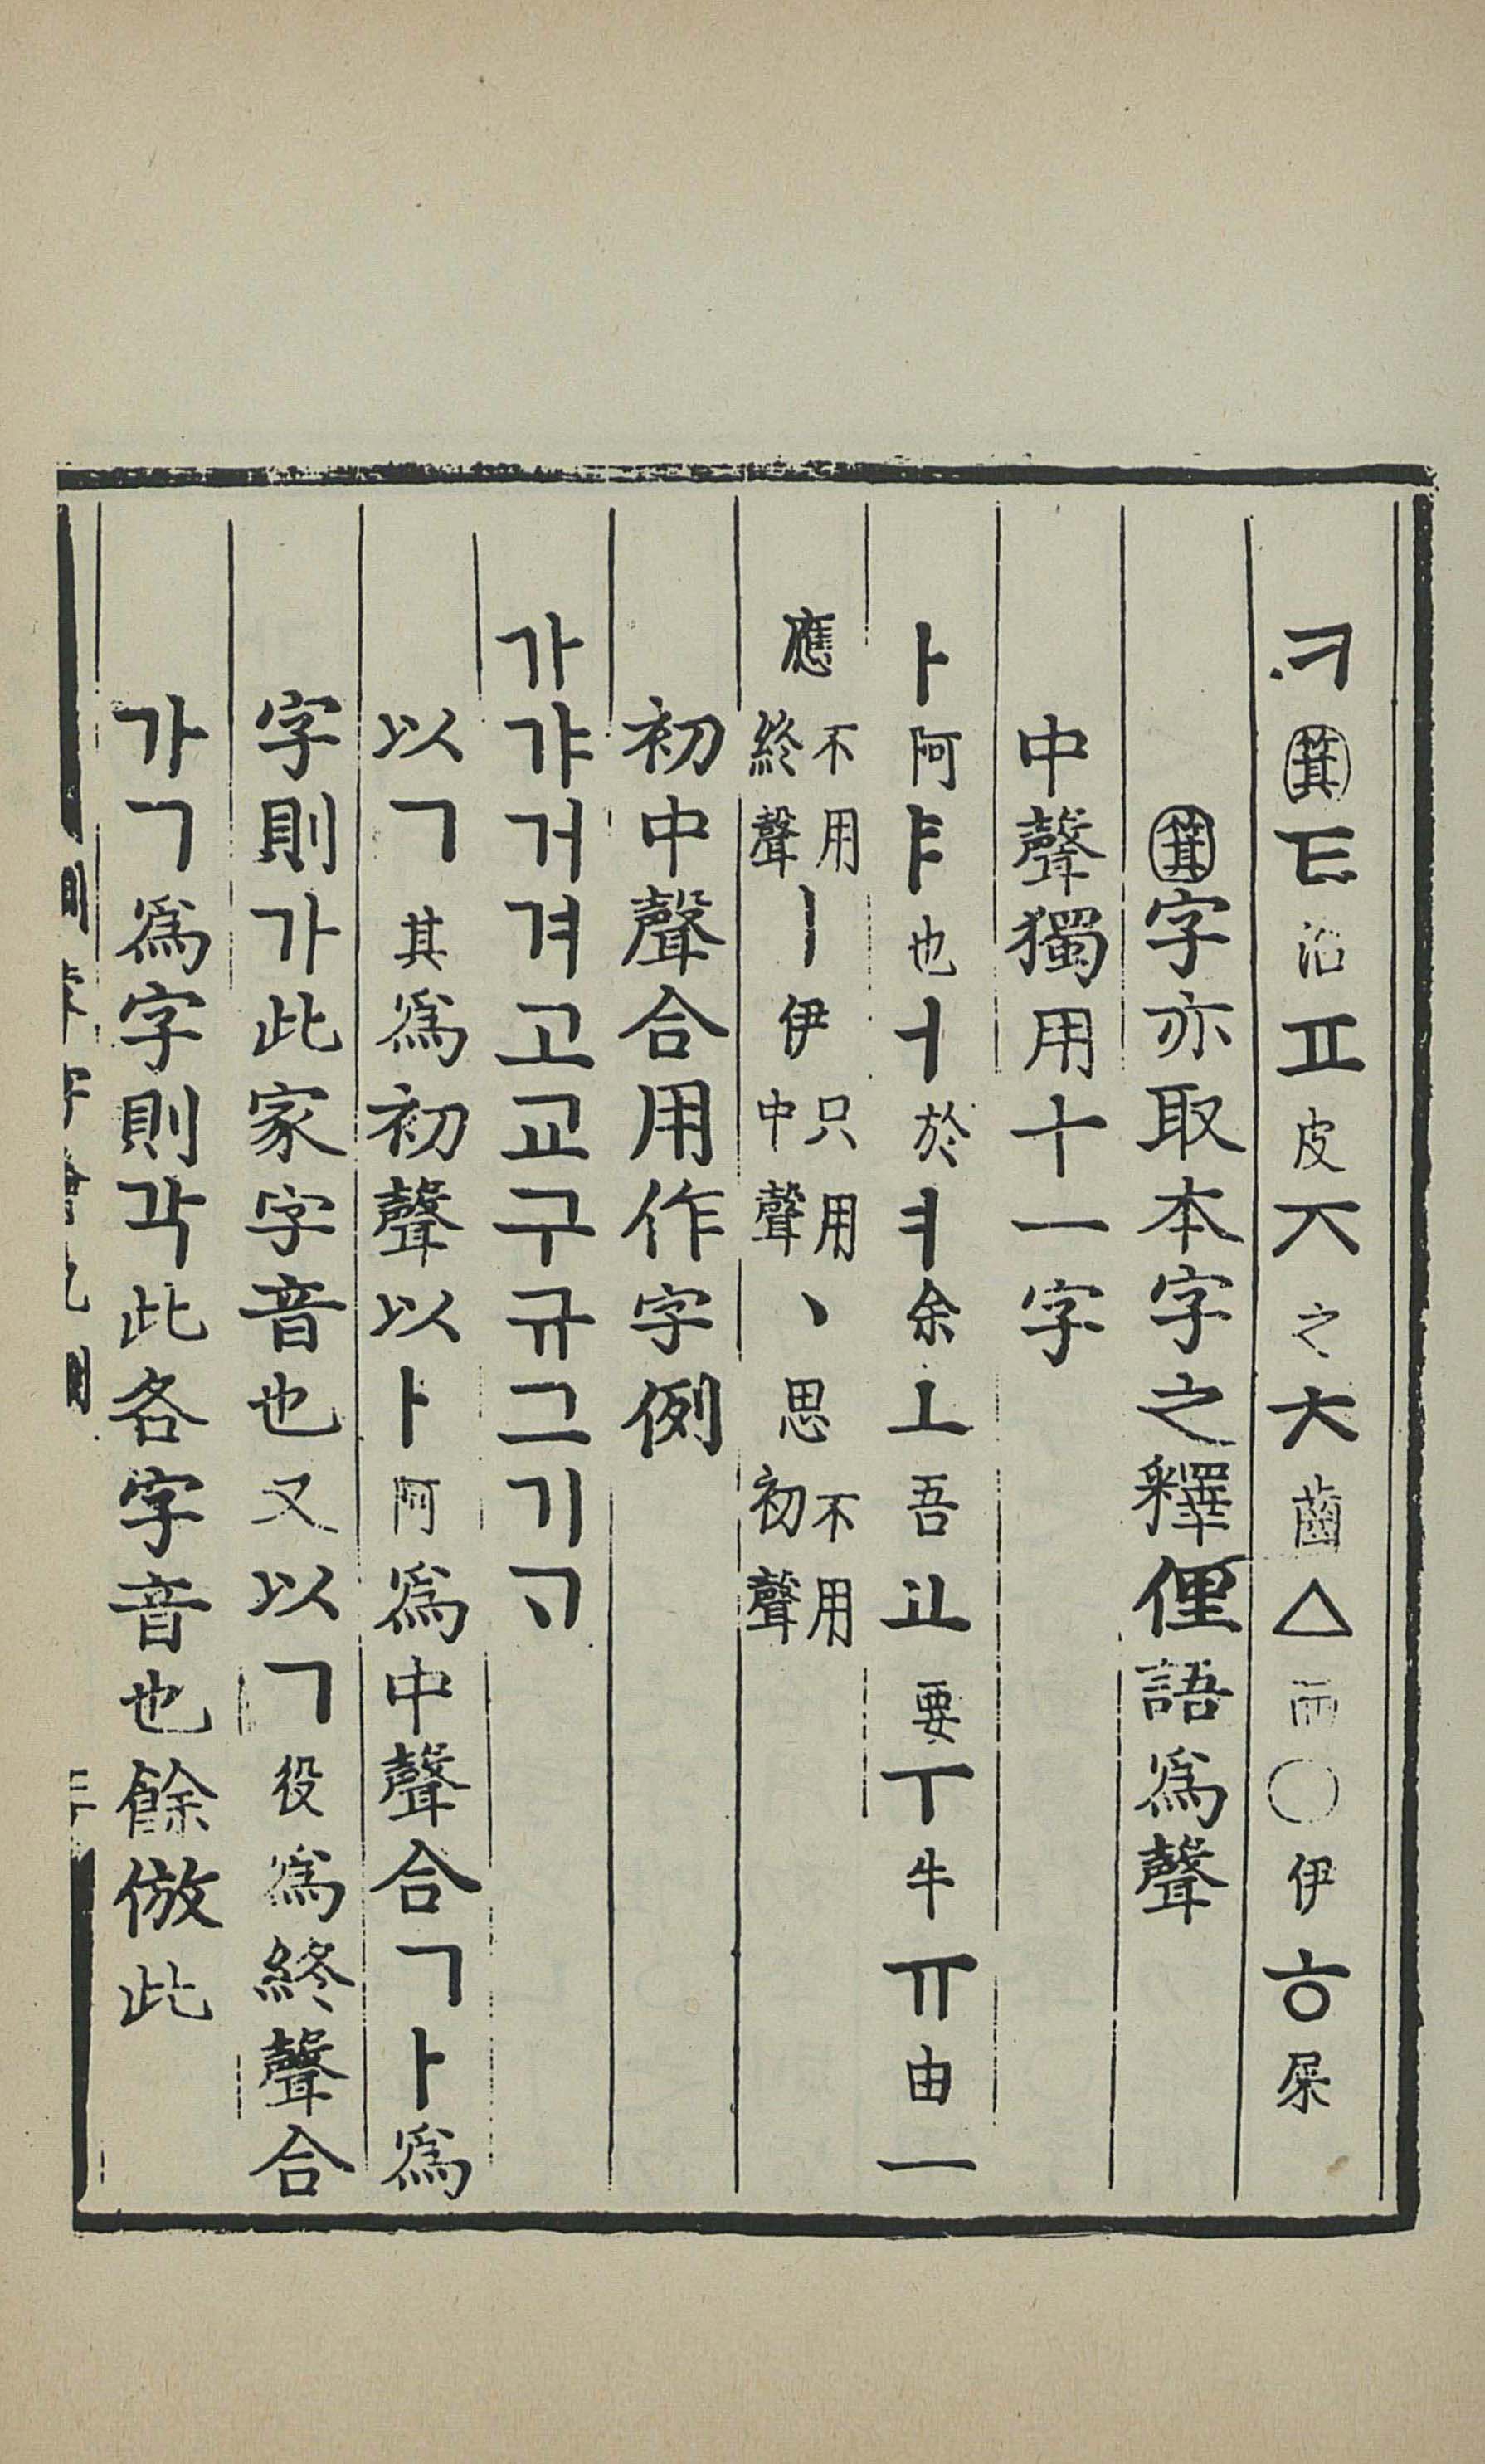 ㅋ㊀箕ㅌ治ㅍ皮ㅈ之ㅊ齒ㅿ而ㅇ伊ㅎ屎
箕字亦取本字之釋俚語爲聲
中聲獨用十一字
ㅏ阿ㅑ也ㅓ於ㅕ余ㅗ吾ㅛ要ㅜ牛ㅠ由ㅡ
應不用終聲ㅣ伊只用中聲ㆍ思不用初聲
初中聲合用作字例
가갸거겨고교구규그기ᄀᆞ
以ㄱ其爲初聲以ㅏ阿爲中聲合ㄱㅏ爲
字則가此家字音也又以ㄱ役爲終聲合
가ㄱ爲字則각此各字音也餘倣此